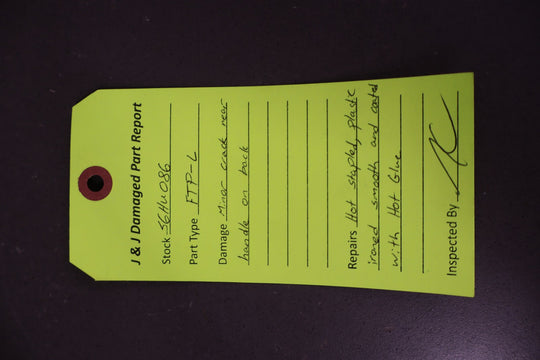 J & J Damaged Part Report
Stock S6HU086
Part Type FTP-L
Damage Minor crack near
handle on back
Repairs Hot stapled, plastic
ironed smooth and coated
with Hot Glue
Inspected By